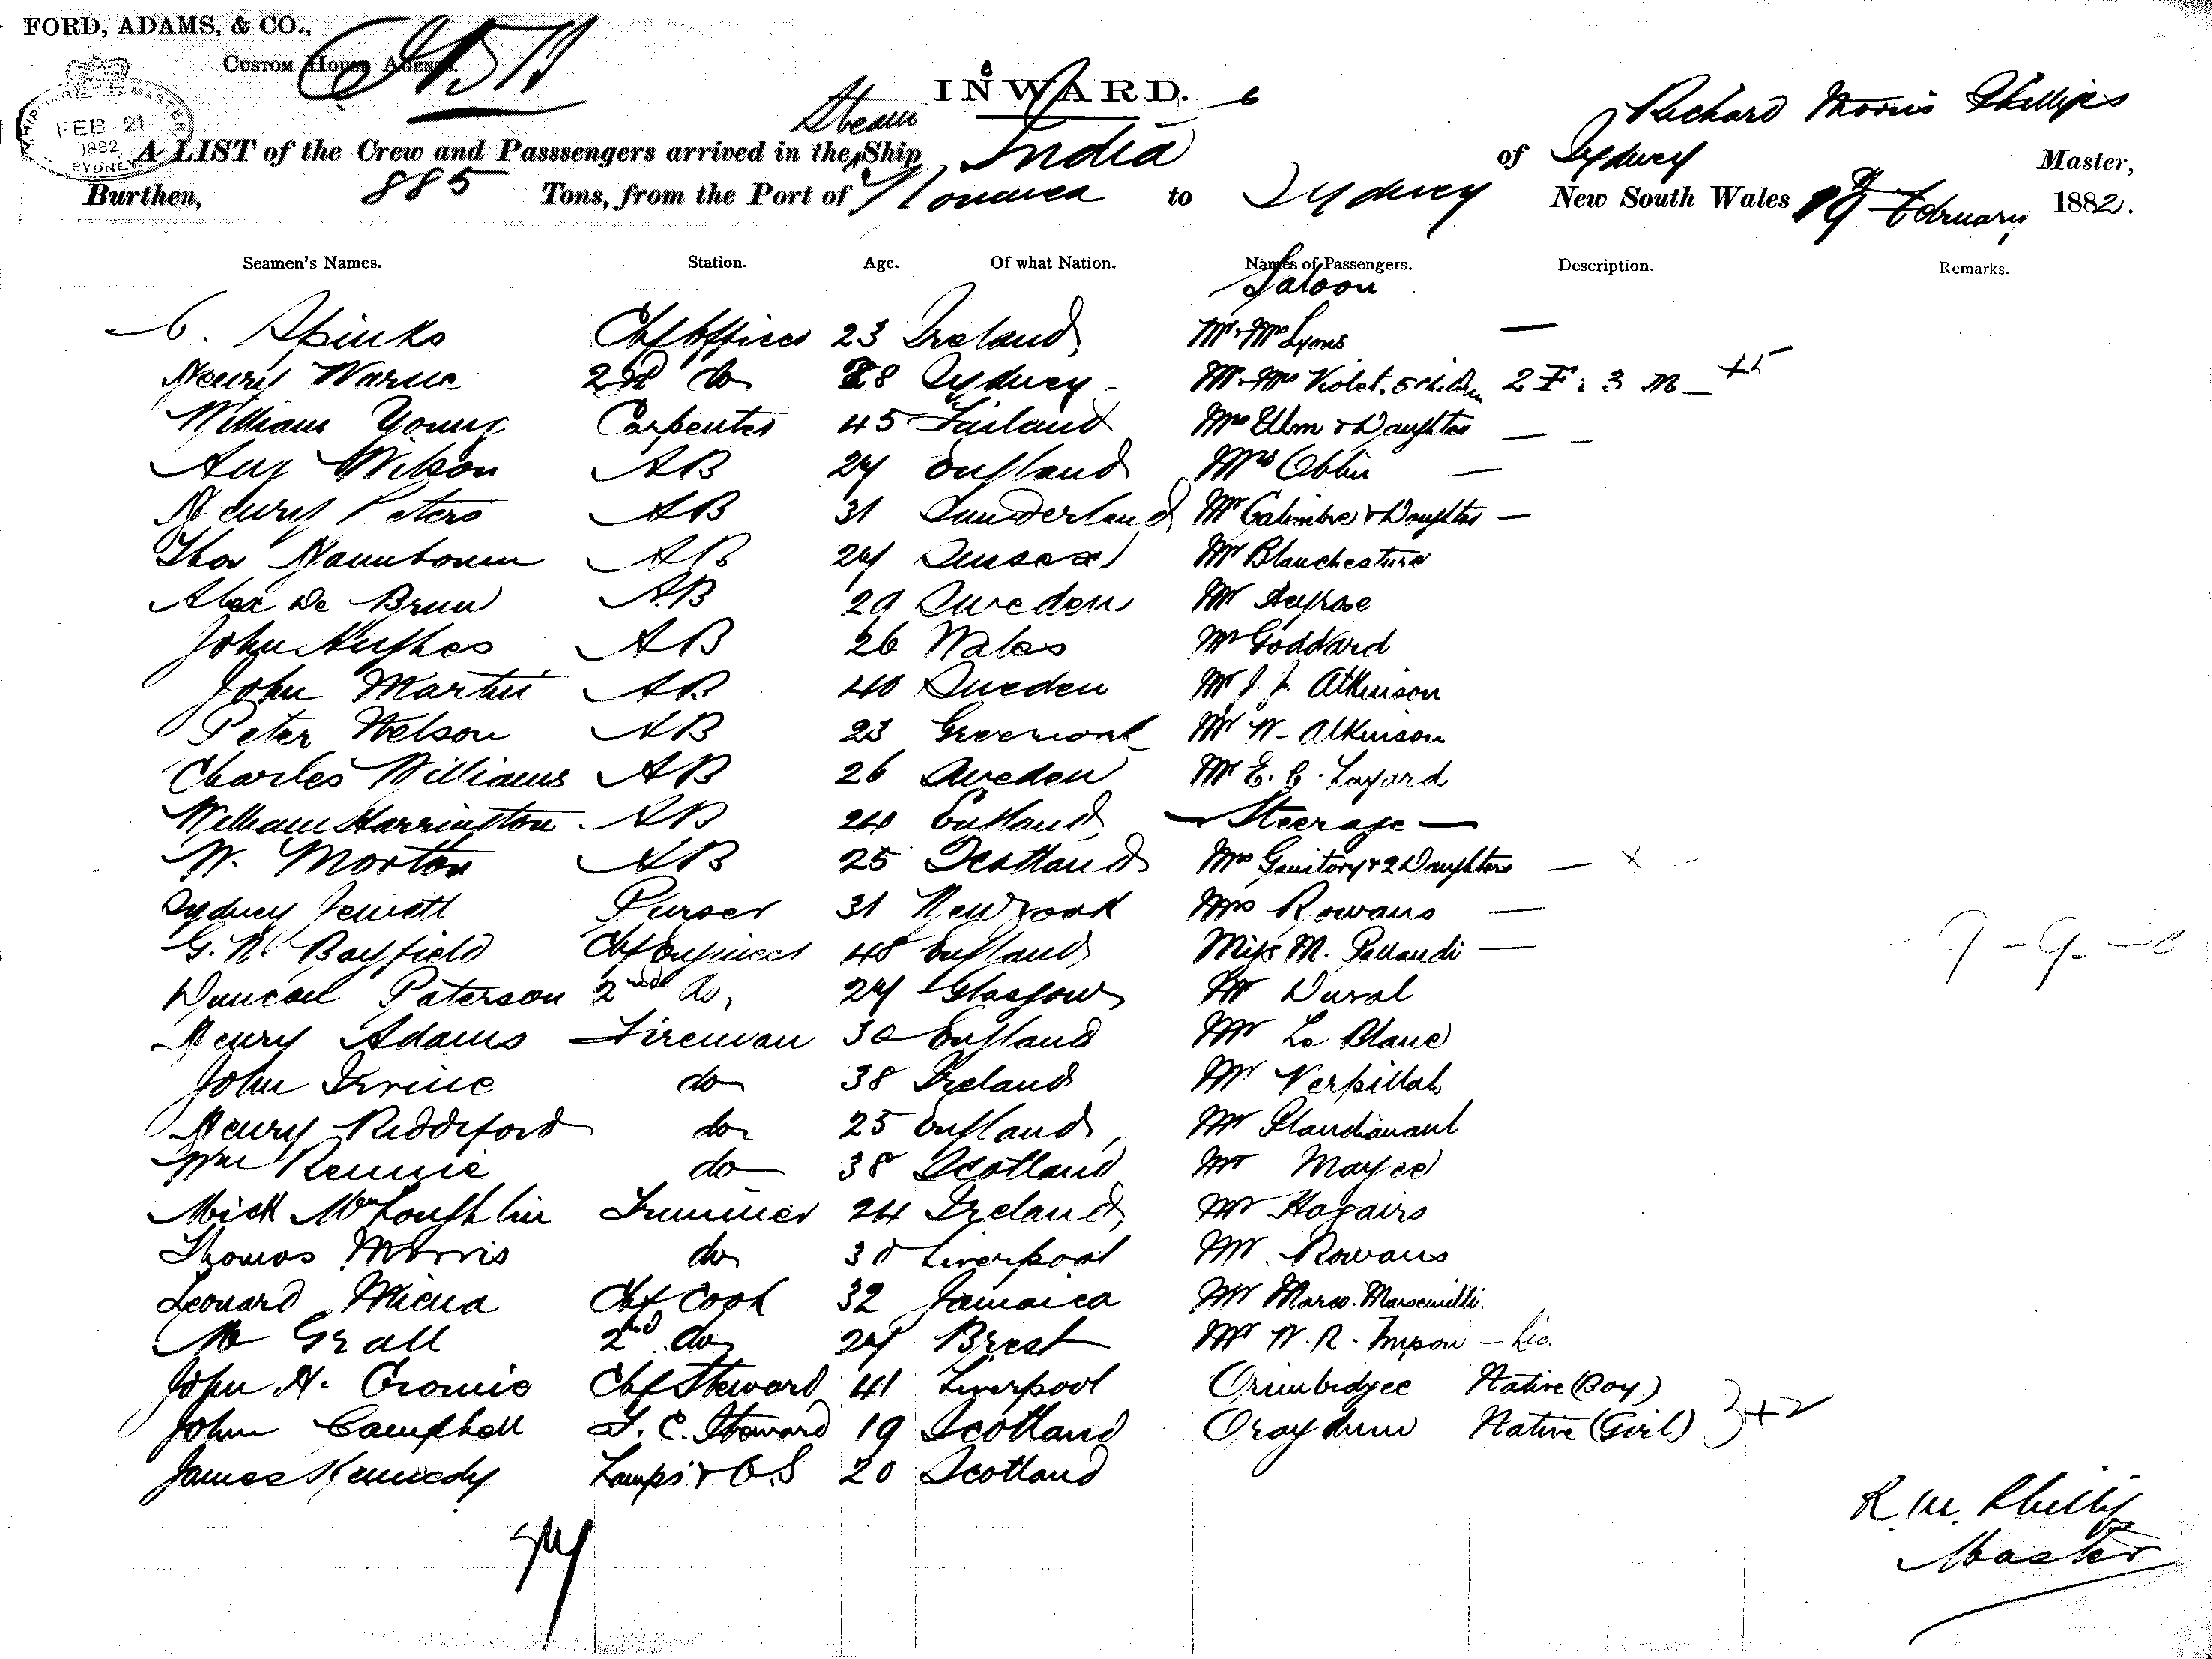 FORD, ADAMS, & CO.,
CUSTOM HOUSE AGENTS.
FEB 21
1882
SYDNEY
INWARD.
Richard Morris Phillips
Steam
A LIST of the Crew and Passsengers arrived in the Ship India of Sydney Master,
Burthen, 885 Tons, from the Port of Noumea to Sydney New South Wales 19 February 1882.
Seamen's Names. Station. Age. Of what Nation. Names of Passengers. Description. Remarks.
Saloon
C. Spinks Chf Officer 23 Ireland Mr Mrs Lyons —
Henry Warne 2nd do 28 Sydney Mr Mrs Violet. 5 children 2 F. 3 M +5
William Young Carpenter 45 Mrs Ulm & Daughter — —
Wilson AB 24 England Mrs —
Henry Peters AB 31 Sunderland Mr & Daughter —
AB 24 Mr
Alex De Brun AB 29 Sweden Mr
John Hughes AB 26 Wales Mr Goddard
John Martin AB 40 Sweden Mr J. J. Atkinson
Peter Nelson AB 23 Mr W. Atkinson
Charles Williams AB 26 Sweden Mr E. L. Layard
William Harrington AB 24 England — Steerage —
W. Morton AB 25 Scotland Mrs & 2 Daughters — x
Sydney Jewett Purser 31 New York Mrs Rowans —
Bayfield Chf Engineer 48 England Miss M. —
Duncan Paterson 2nd do, 24 Glasgow Mr Duval
Henry Adams Fireman 30 England Mr Le Blanc
John Irvine do 38 Ireland Mr
Henry Riddiford do 25 England, Mr
Wm Rennie do 38 Scotland Mr
Mick McLoughlin Trimmer 24 Ireland Mr
Thomas Morris do 30 Liverpool Mr Rowans
Leonard Chf Cook 32 Jamaica Mr
Grall 2nd do 24 Brest Mr W. R.
John H. Cromie Chf Steward 41 Liverpool Native (Boy)
John Campbell F. C. Steward 19 Scotland Native (Girl) } +2
James Kennedy Lamps & O.S 20 Scotland
R. M. Phillips
Master